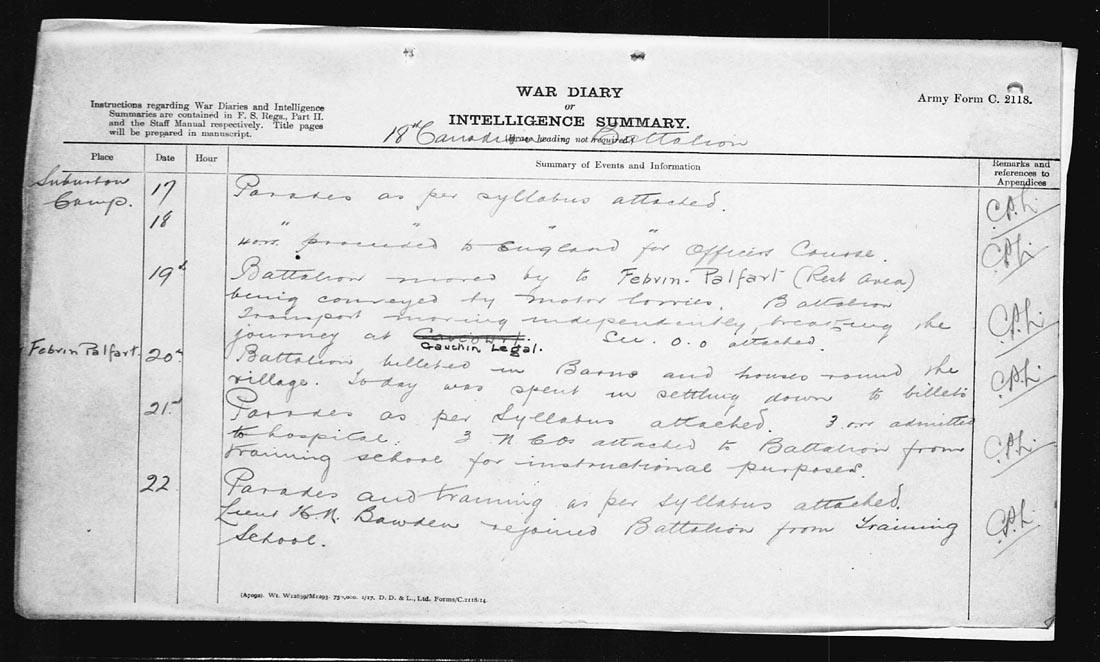 WAR DIARY
or
INTELLIGENCE SUMMARY.
(Erase heading not required.)
18th Canadian Battalion
Army Form C. 2118.
Instructions regarding War Diaries and Intelligence
Summaries are contained in F. S. Regs., Part II.
and the Staff Manual respectively. Title pages
will be prepared in manuscript.
Place
Date
Hour
Summary of Events and Information
Remarks and
references to
Appendices
Suburban
Camp.
17
Parades as per syllabus attached.
18
" " "
proceeded to England for Officers Course.
19th
Battalion moved by to Febvin-Palfart (Rest Area)
being conveyed by motor lorries. Battalion
Transport moving independently, breaking the
journey at Gauchin Legal. See O.O attached.
Febvin Palfart.
20th
Battalion billeted in Barns and houses round the
village. Today was spent in settling down to billets
21st
Parades as per Syllabus attached. 3 o.r. admitted
to hospital. 3 N.C.Os attached to Battalion from
training school for instructional purposes.
22
Parades and training as per syllabus attached.
Lieut H.N. Bawden rejoined Battalion from Training
School.
(A7092). Wt. W12839/M1293. 750,000. 1/17. D. D. & L., Ltd. Forms/C.2118/14.